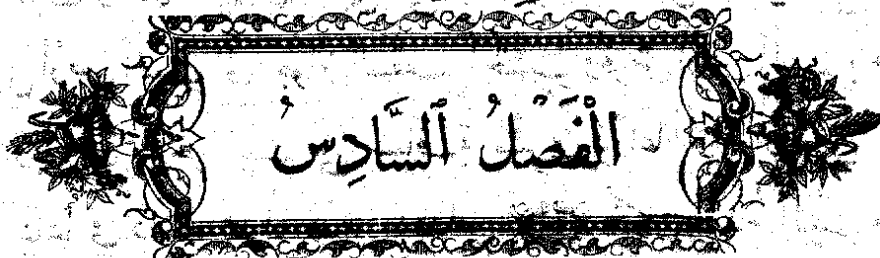 الْفَصْلُ ٱلسَّادِسُ